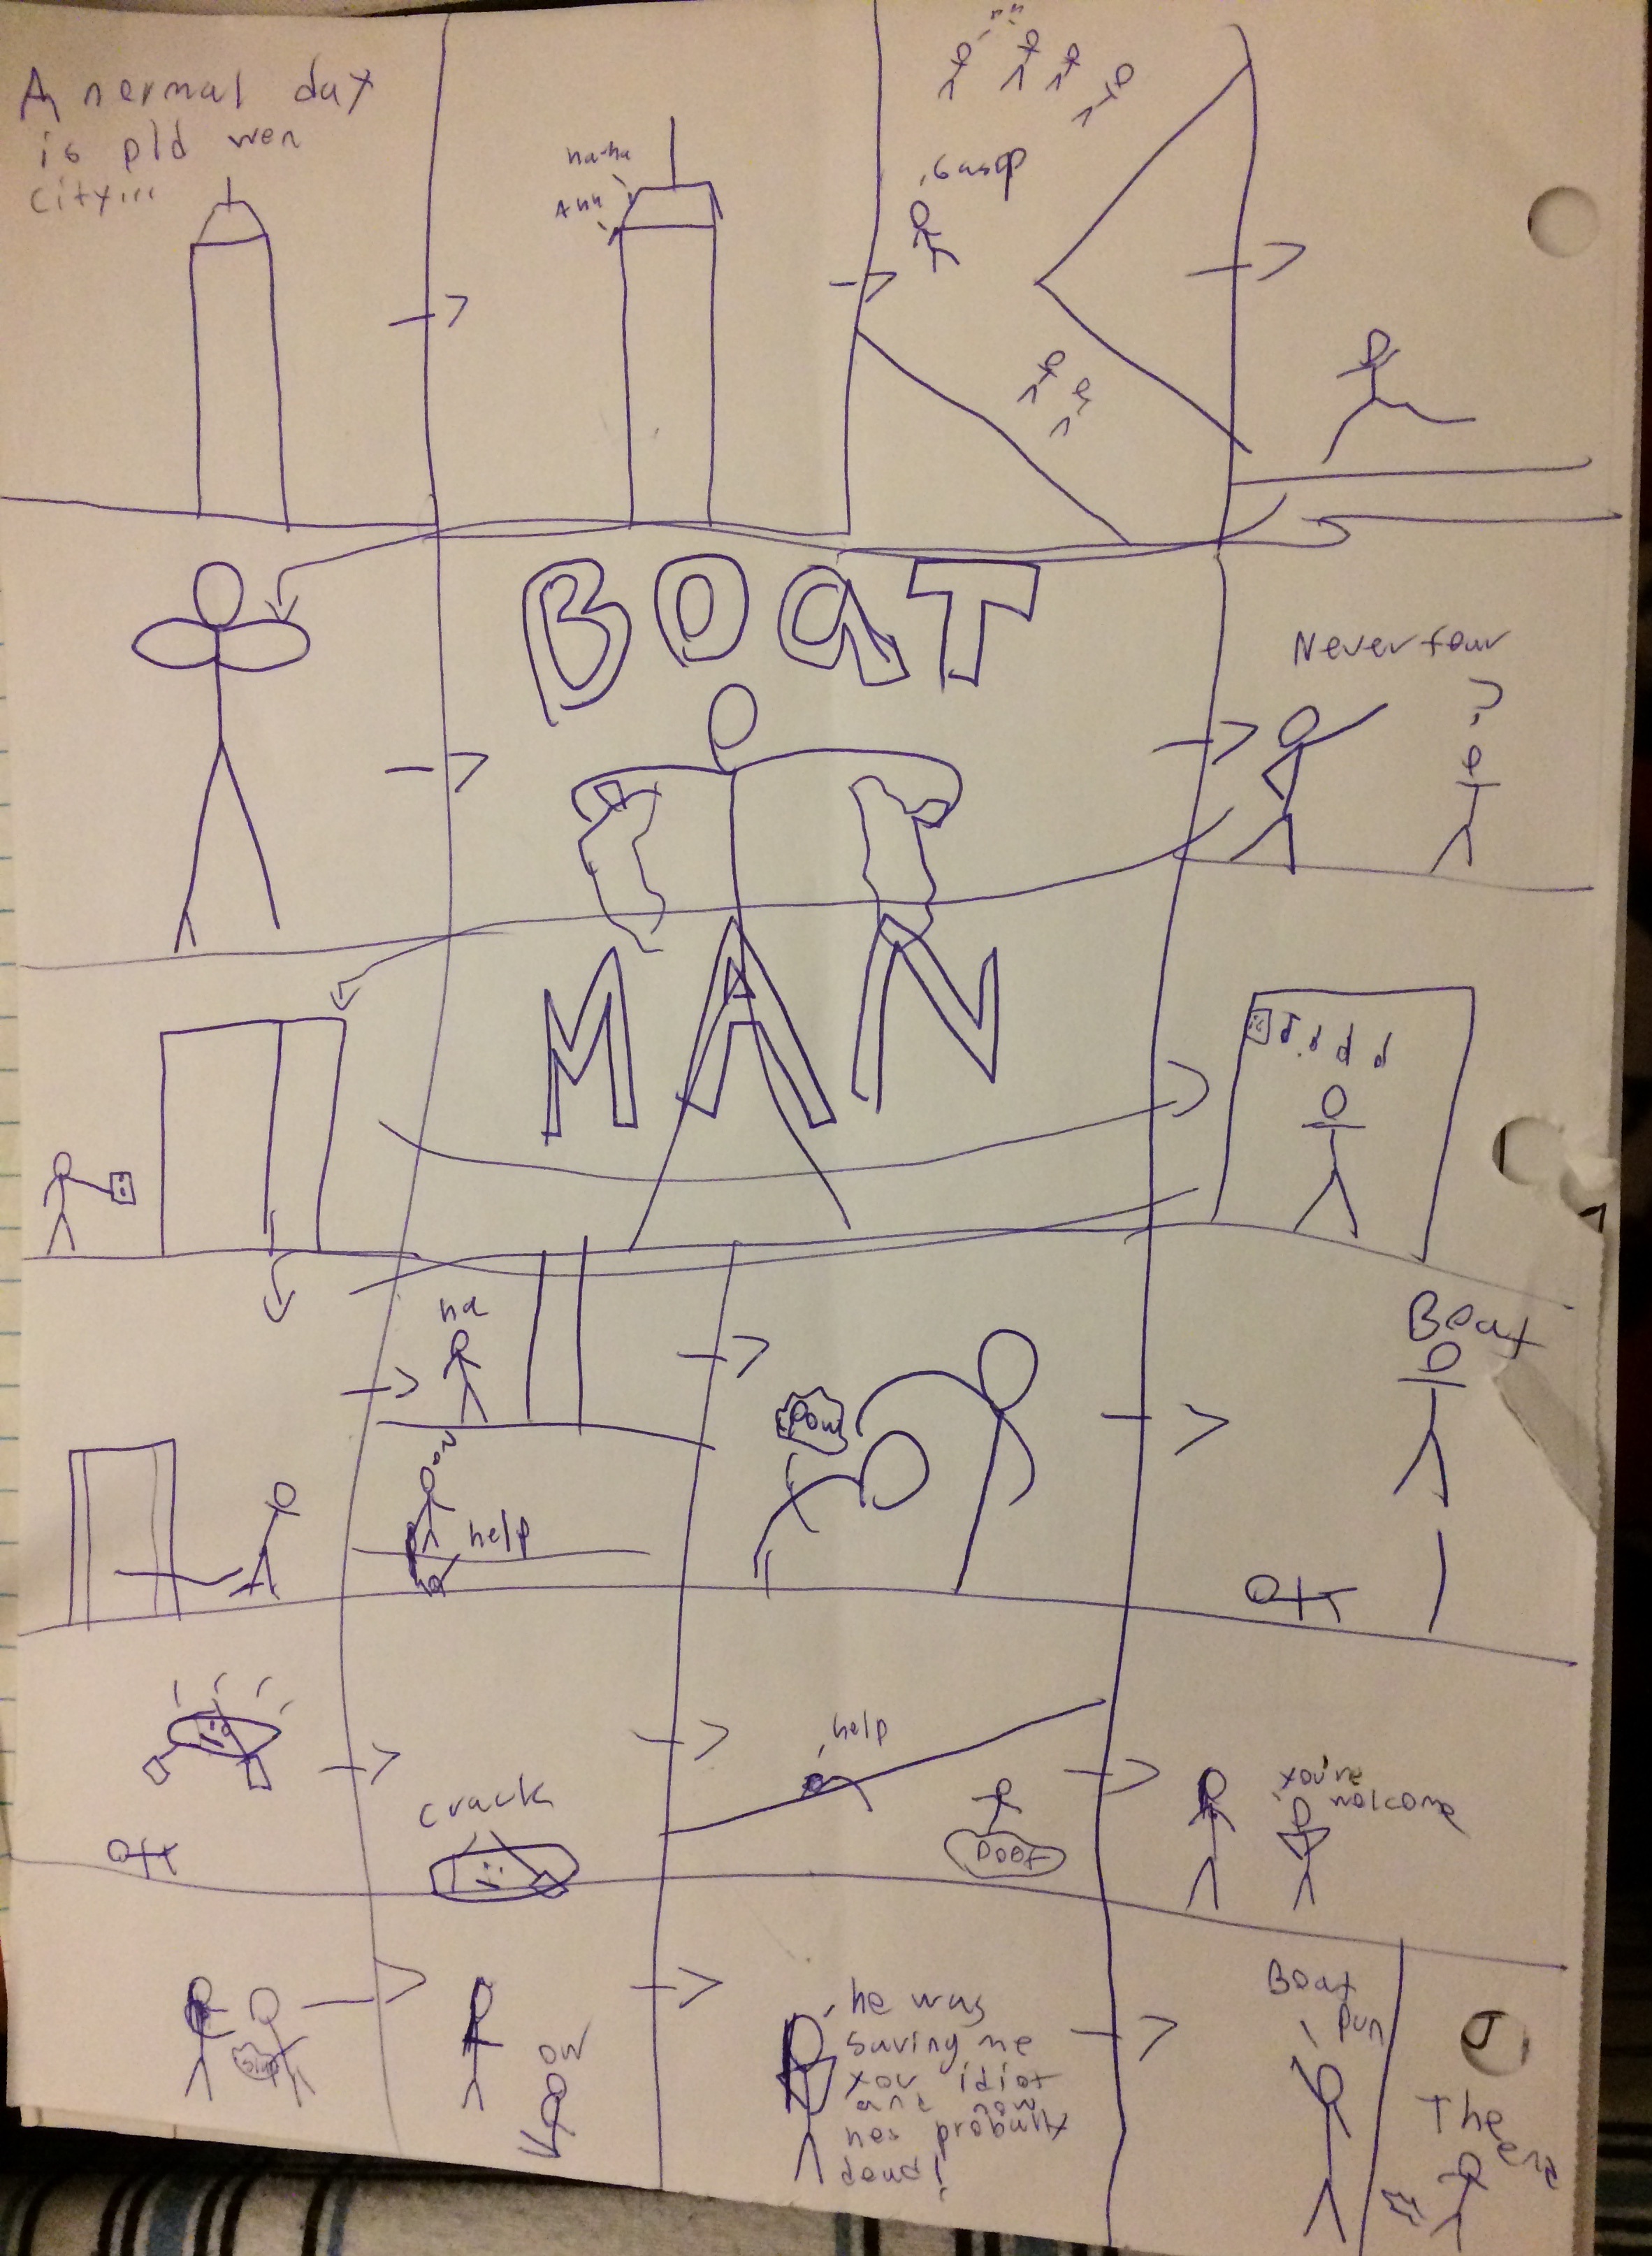 A normal day
is old wen
city...
ha-ha
Ahh
Gasp
BOaT
MAN
Never fear
?
ha
ow
help
Pow
Boat
crack
help
Poof
you're
welcome
Slap
ow
he was
saving me
you idiot
and now
hes probally
dead!
Boat
pun
The
end